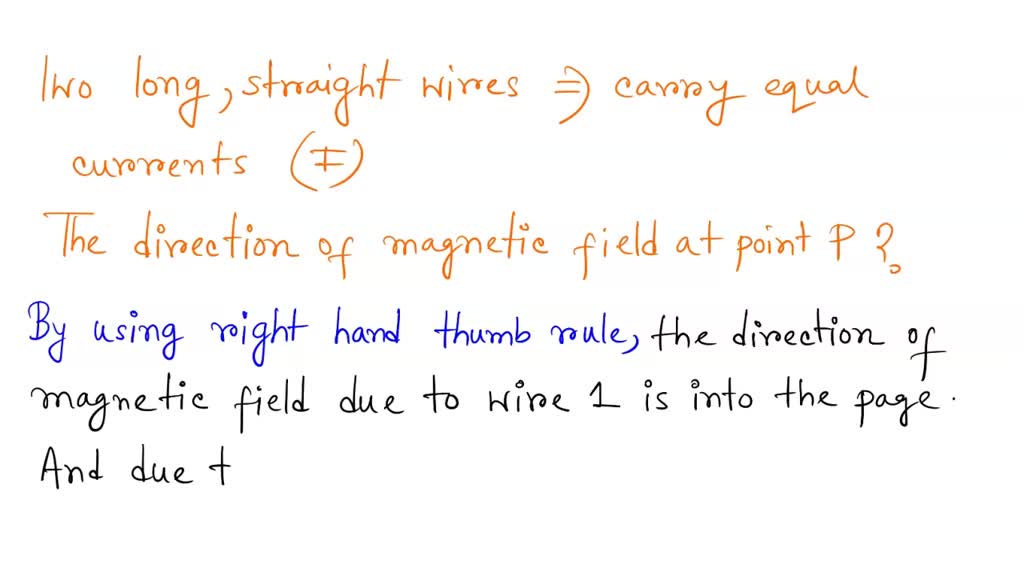 Two long, straight wires ⇒ carry equal
currents (I)
The direction of magnetic field at point P?
By using right hand thumb rule, the direction of
magnetic field due to wire 1 is into the page.
And due t